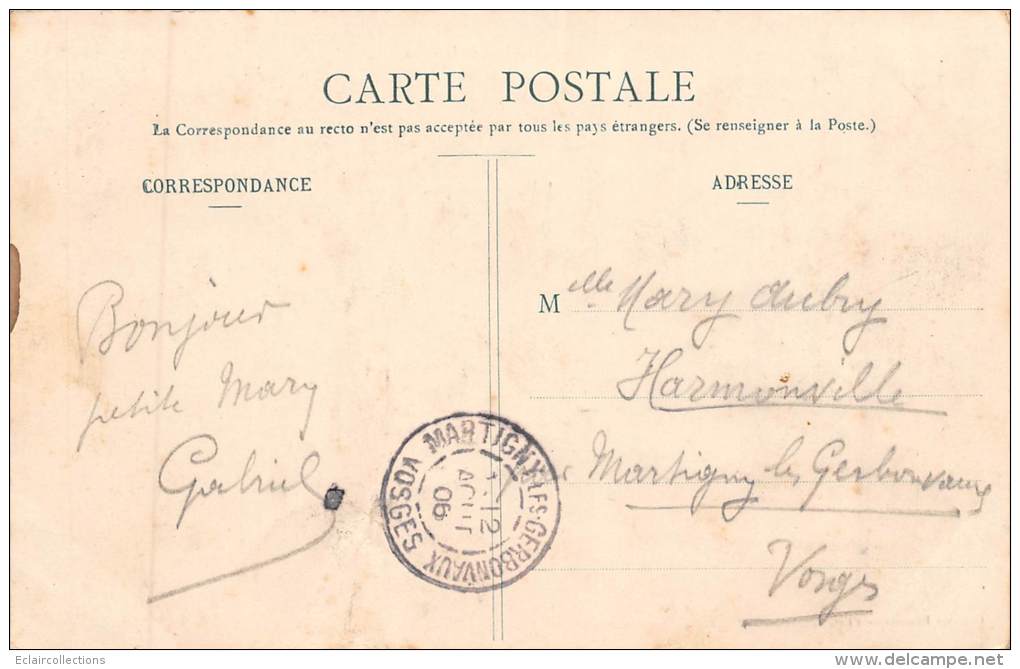 CARTE POSTALE
La Correspondance au recto n'est pas acceptée par tous les pays étrangers. (Se renseigner à la Poste.)
CORRESPONDANCE
Bonjour
petite Mary
Gabriel
ADRESSE
Mlle Mary Aubry
Harmonville
par Martigny les Gerbonvaux
Vosges
MARTIGNY-LES-GERBONVAUX VOSGES
12
AOUT
06
Eclaircollections
www.delcampe.net